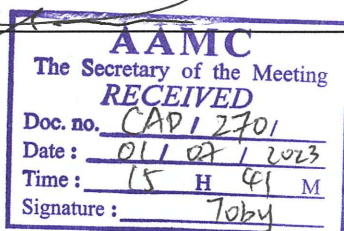 AAMC
The Secretary of the Meeting
RECEIVED
Doc. no. CAP / 270 /
Date : 01 / 07 / 2023
Time : 15 H 41 M
Signature : Toby